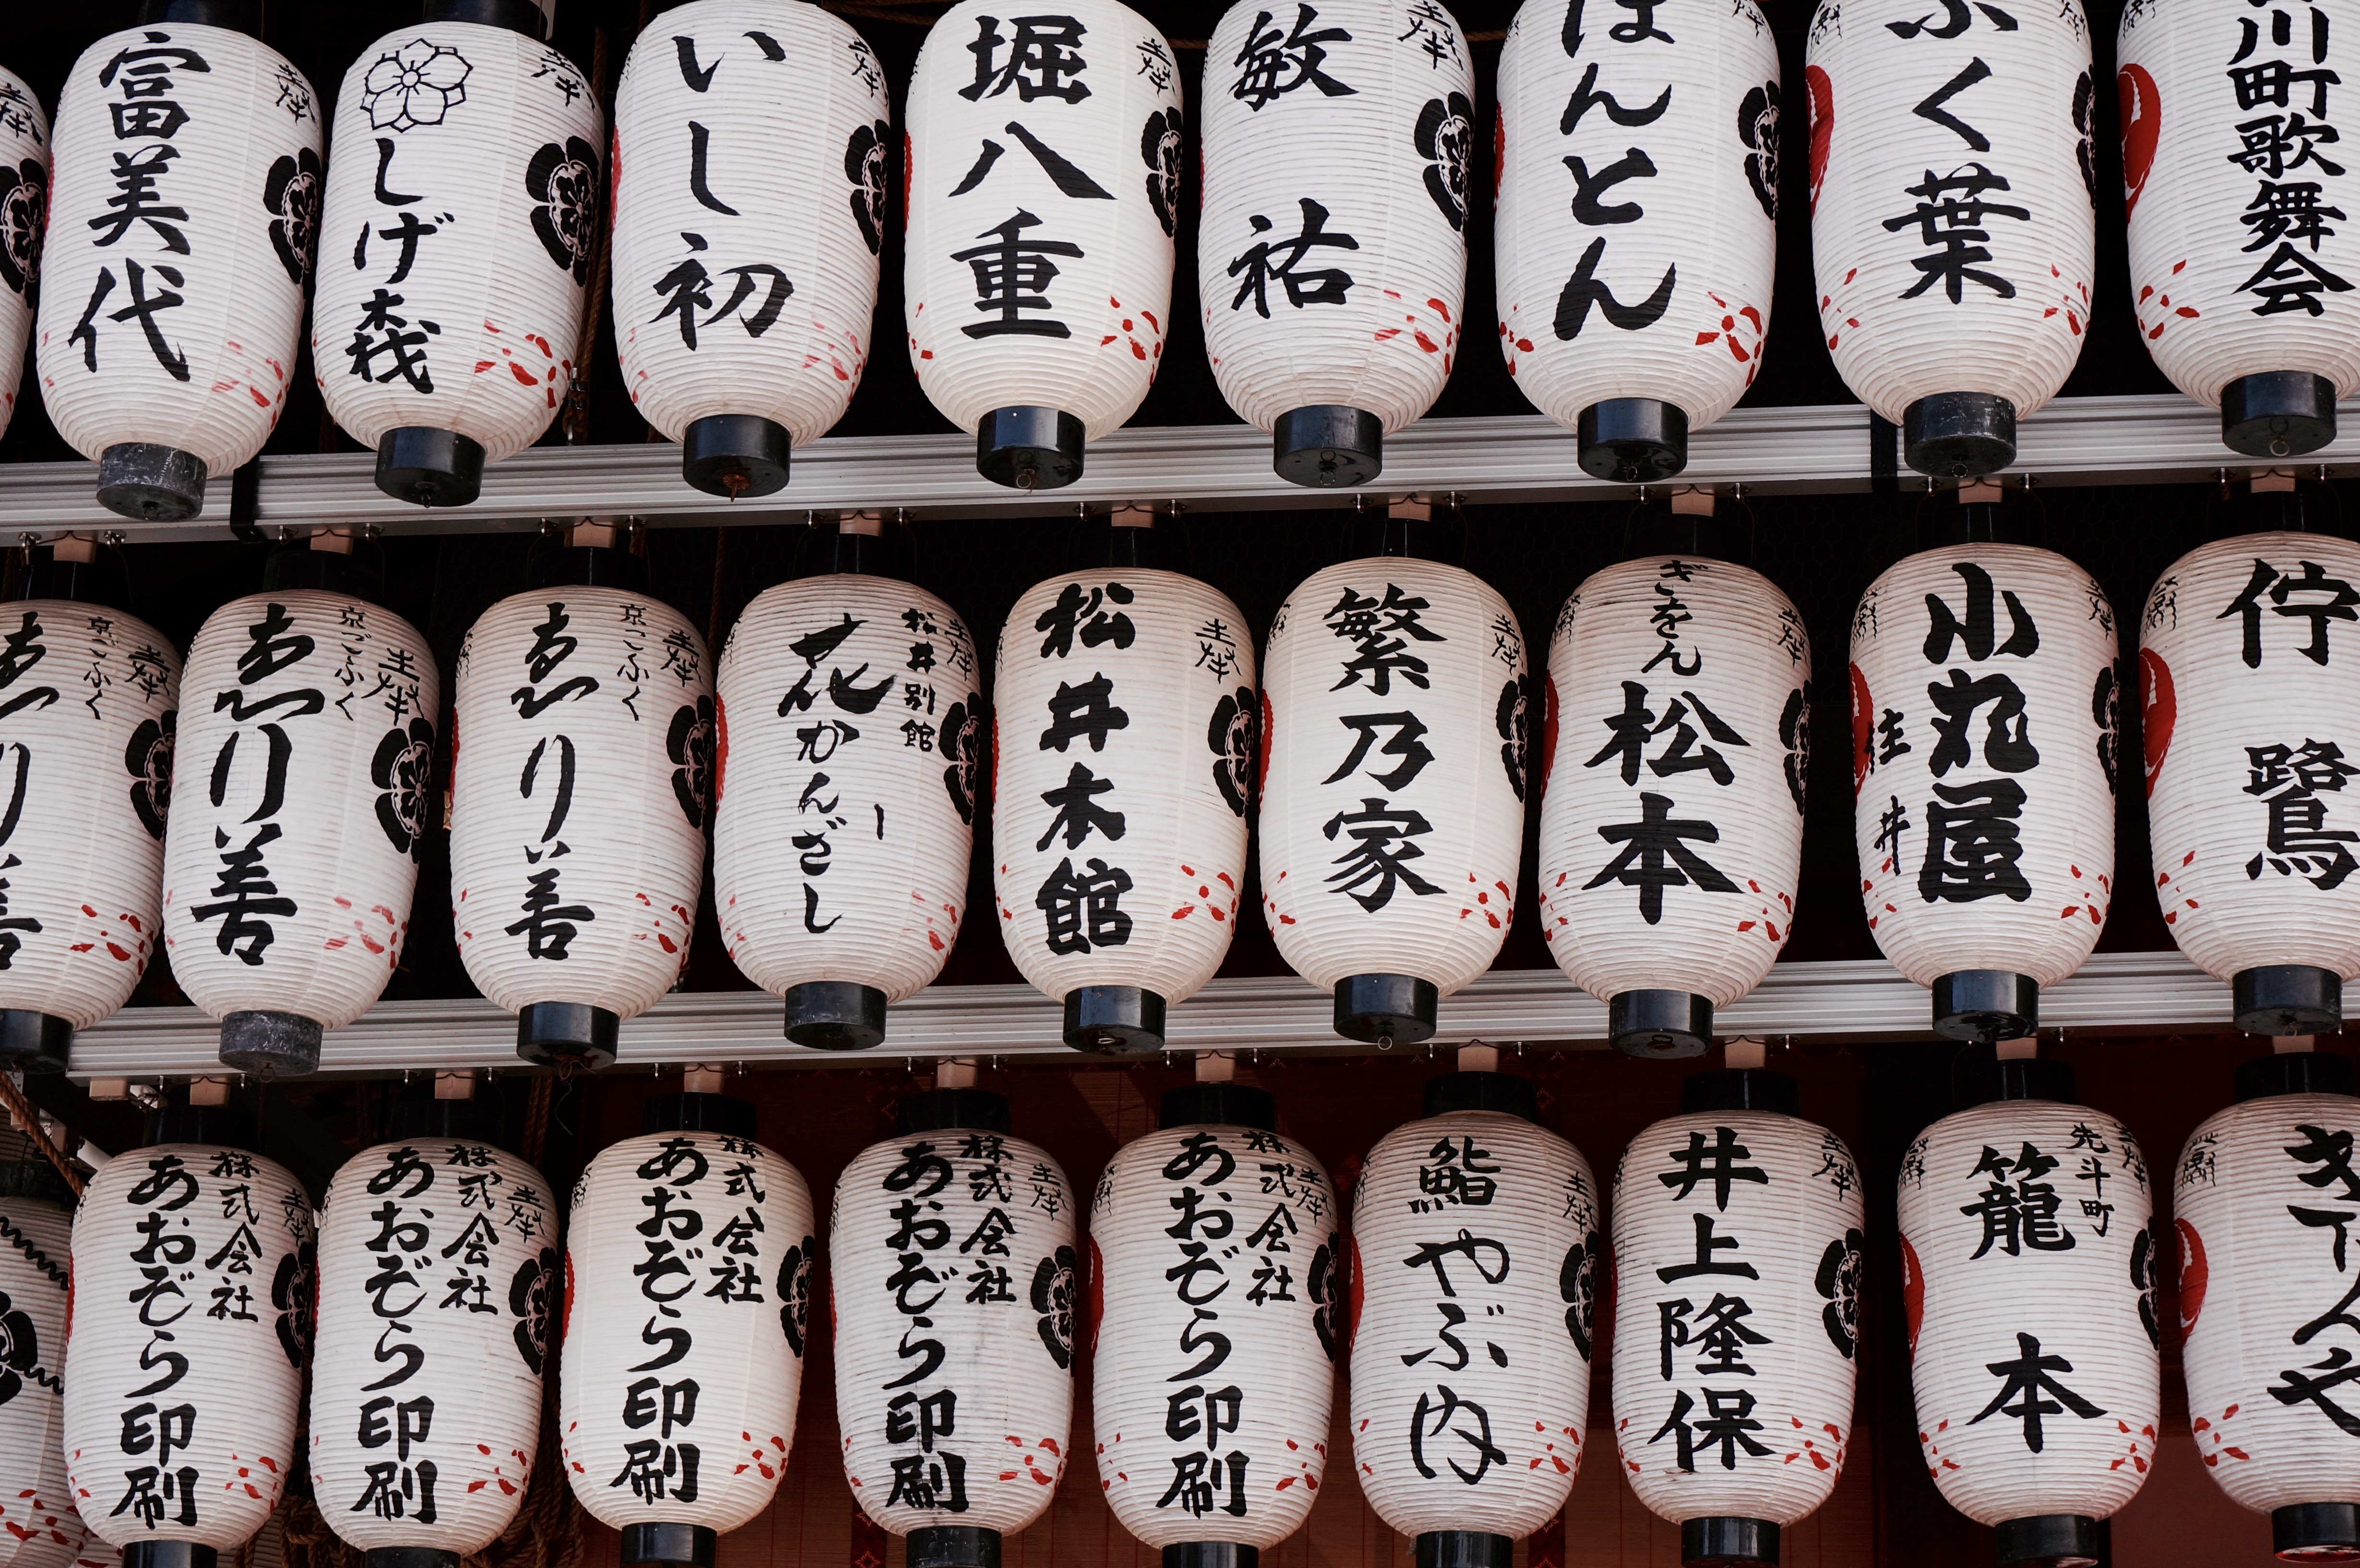 富美代
奉
しげ森
奉
いし初
奉
堀八重
奉
敏祐
奉
はんとん
ふく葉
川町歌舞会
京ごふく
ゑり善
奉
京ごふく
ゑり善
奉
京ごふく
ゑり善
奉
松井別館
花かんざし
奉
松井本館
奉
繁乃家
奉
ぎをん
松本
奉
小丸屋
住井
佇
鷺
株式会社
あおぞら印刷
奉
株式会社
あおぞら印刷
奉
株式会社
あおぞら印刷
株式会社
あおぞら印刷
奉
株式会社
あおぞら印刷
奉
鮨やぶ内
奉
井上隆保
奉
先斗町
籠本